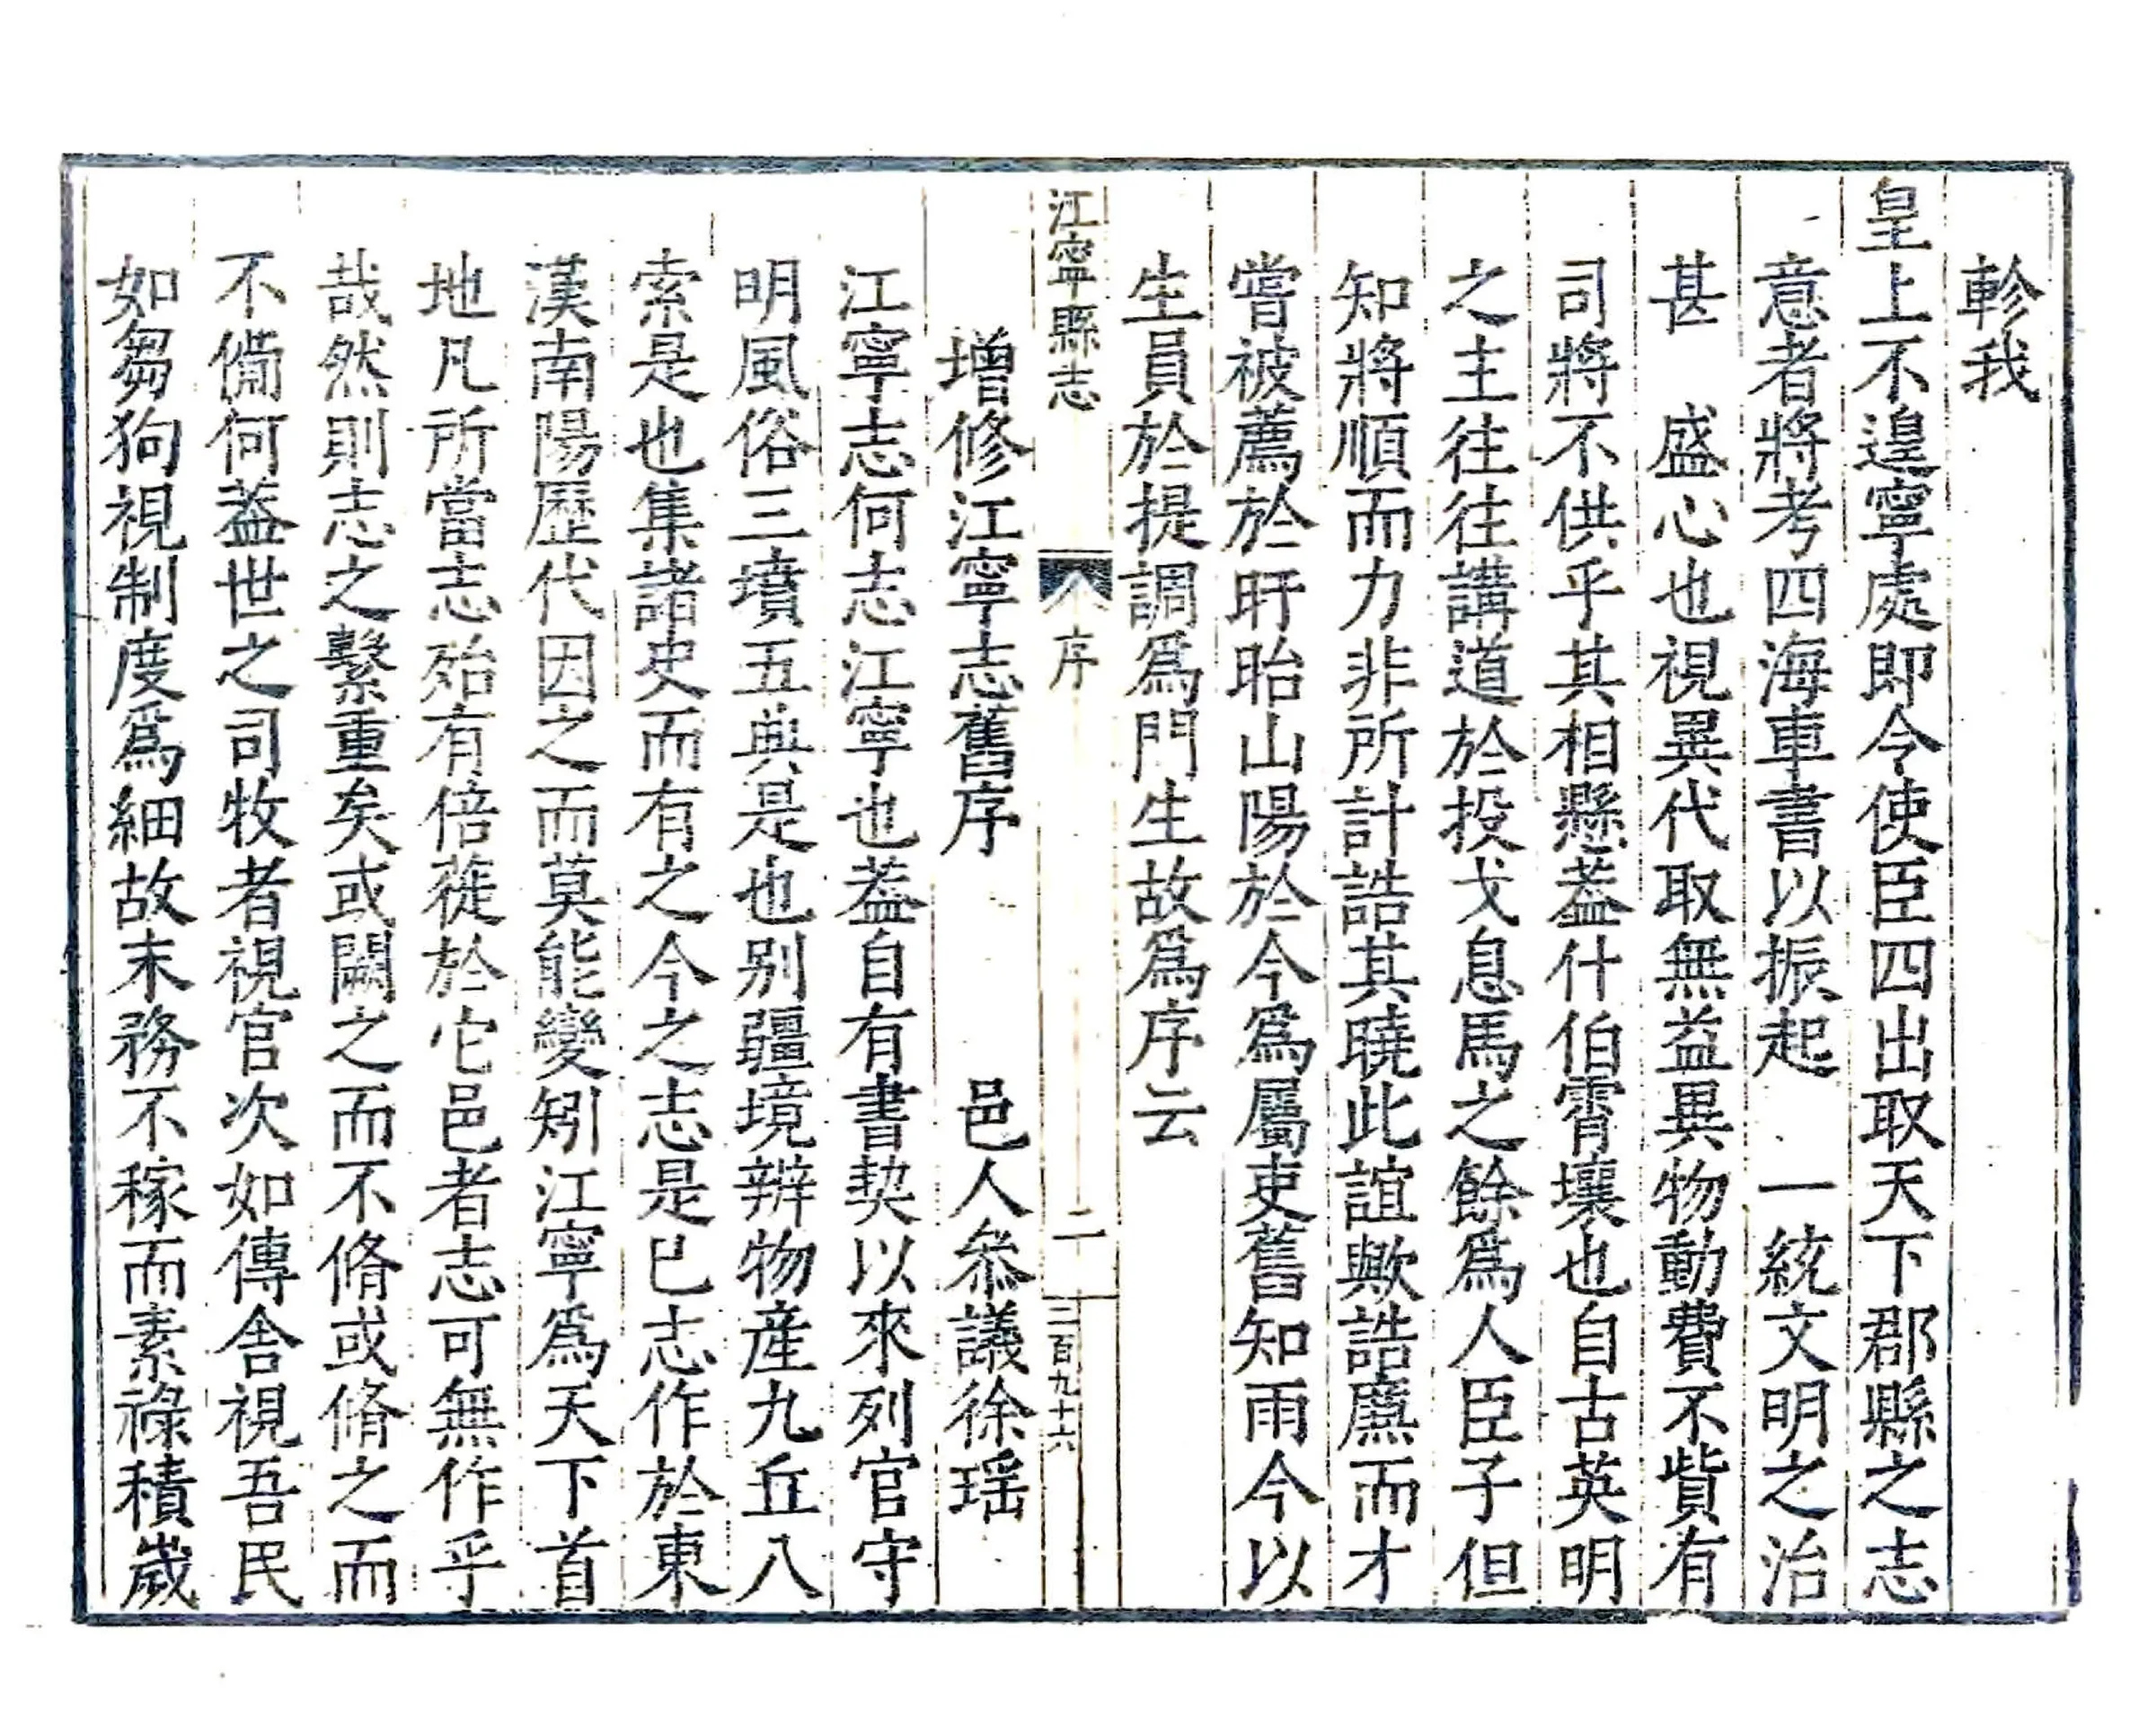 軫我
皇上不遑寧處即今使臣四出取天下郡縣之志
意者將考四海車書以振起　一統文明之治
甚　盛心也視異代取無益異物動費不貲有
司將不供乎其相懸葢什伯霄壤也自古英明
之主往往講道於投戈息馬之餘為人臣子但
知將順而力非所計誥其曉此誼歟誥廌而才
嘗被薦於盱眙山陽於今為屬吏舊知雨今以
生員於提調為門生故為序云
江寧縣志
序
二
二百九十六
增修江寧志舊序　邑人叅議徐瑶
江寧志何志江寧也葢自有書契以來列官守
明風俗三墳五典是也別疆境辨物産九丘八
索是也集諸史而有之今之志是已志作於東
漢南陽歷代因之而莫能變矧江寧為天下首
地凡所當志殆有倍蓰於它邑者志可無作乎
哉然則志之繫重矣或闕之而不脩或脩之而
不備何葢世之司牧者視官次如傳舍視吾民
如芻狗視制度為細故末務不稼而素祿積歲